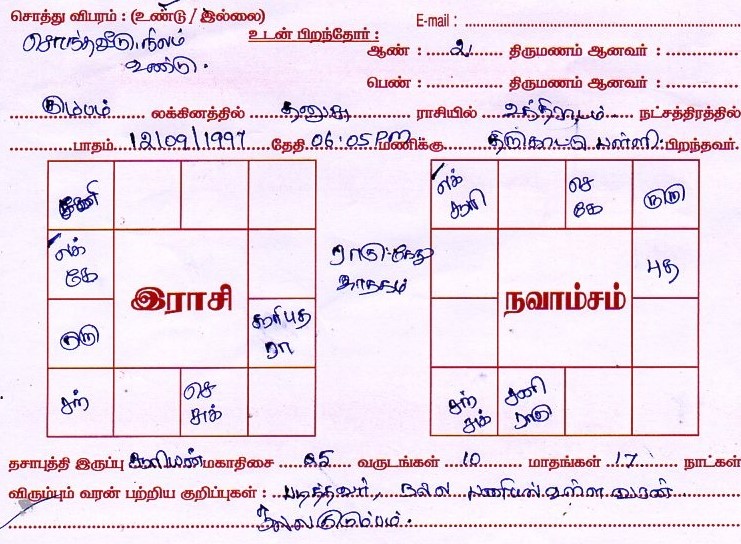 சொத்து விபரம் : (உண்டு / இல்லை)
E-mail :
சொந்தவீடு, நிலம்
உண்டு.
உடன் பிறந்தோர் :
ஆண் : 2 திருமணம் ஆனவர் :
பெண் : திருமணம் ஆனவர் :
கும்பம் லக்கினத்தில் தனுசு ராசியில் உத்திராடம் நட்சத்திரத்தில்
பாதம் 12/09/1997 தேதி 06:05 PM மணிக்கு பிறந்தவர்.
சனி
லக்
கே
குரு
சந்
செ
சுக்
சூரி புத
ரா
இராசி
ராகு கேது
ஜாதகம்
லக்
சூரி
செ
கே
குரு
புத
நவாம்சம்
சந்
சுக்
சனி
ராகு
தசாபுத்தி இருப்பு சூரியன் மகாதிசை 05 வருடங்கள் 10 மாதங்கள் 17 நாட்கள்
விரும்பும் வரன் பற்றிய குறிப்புகள் : படித்தவர், நல்ல பணியில் உள்ள வரன்
நல்ல குடும்பம்.